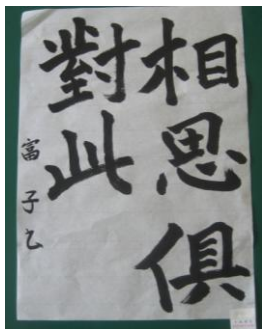 相思俱
對此
富子乙